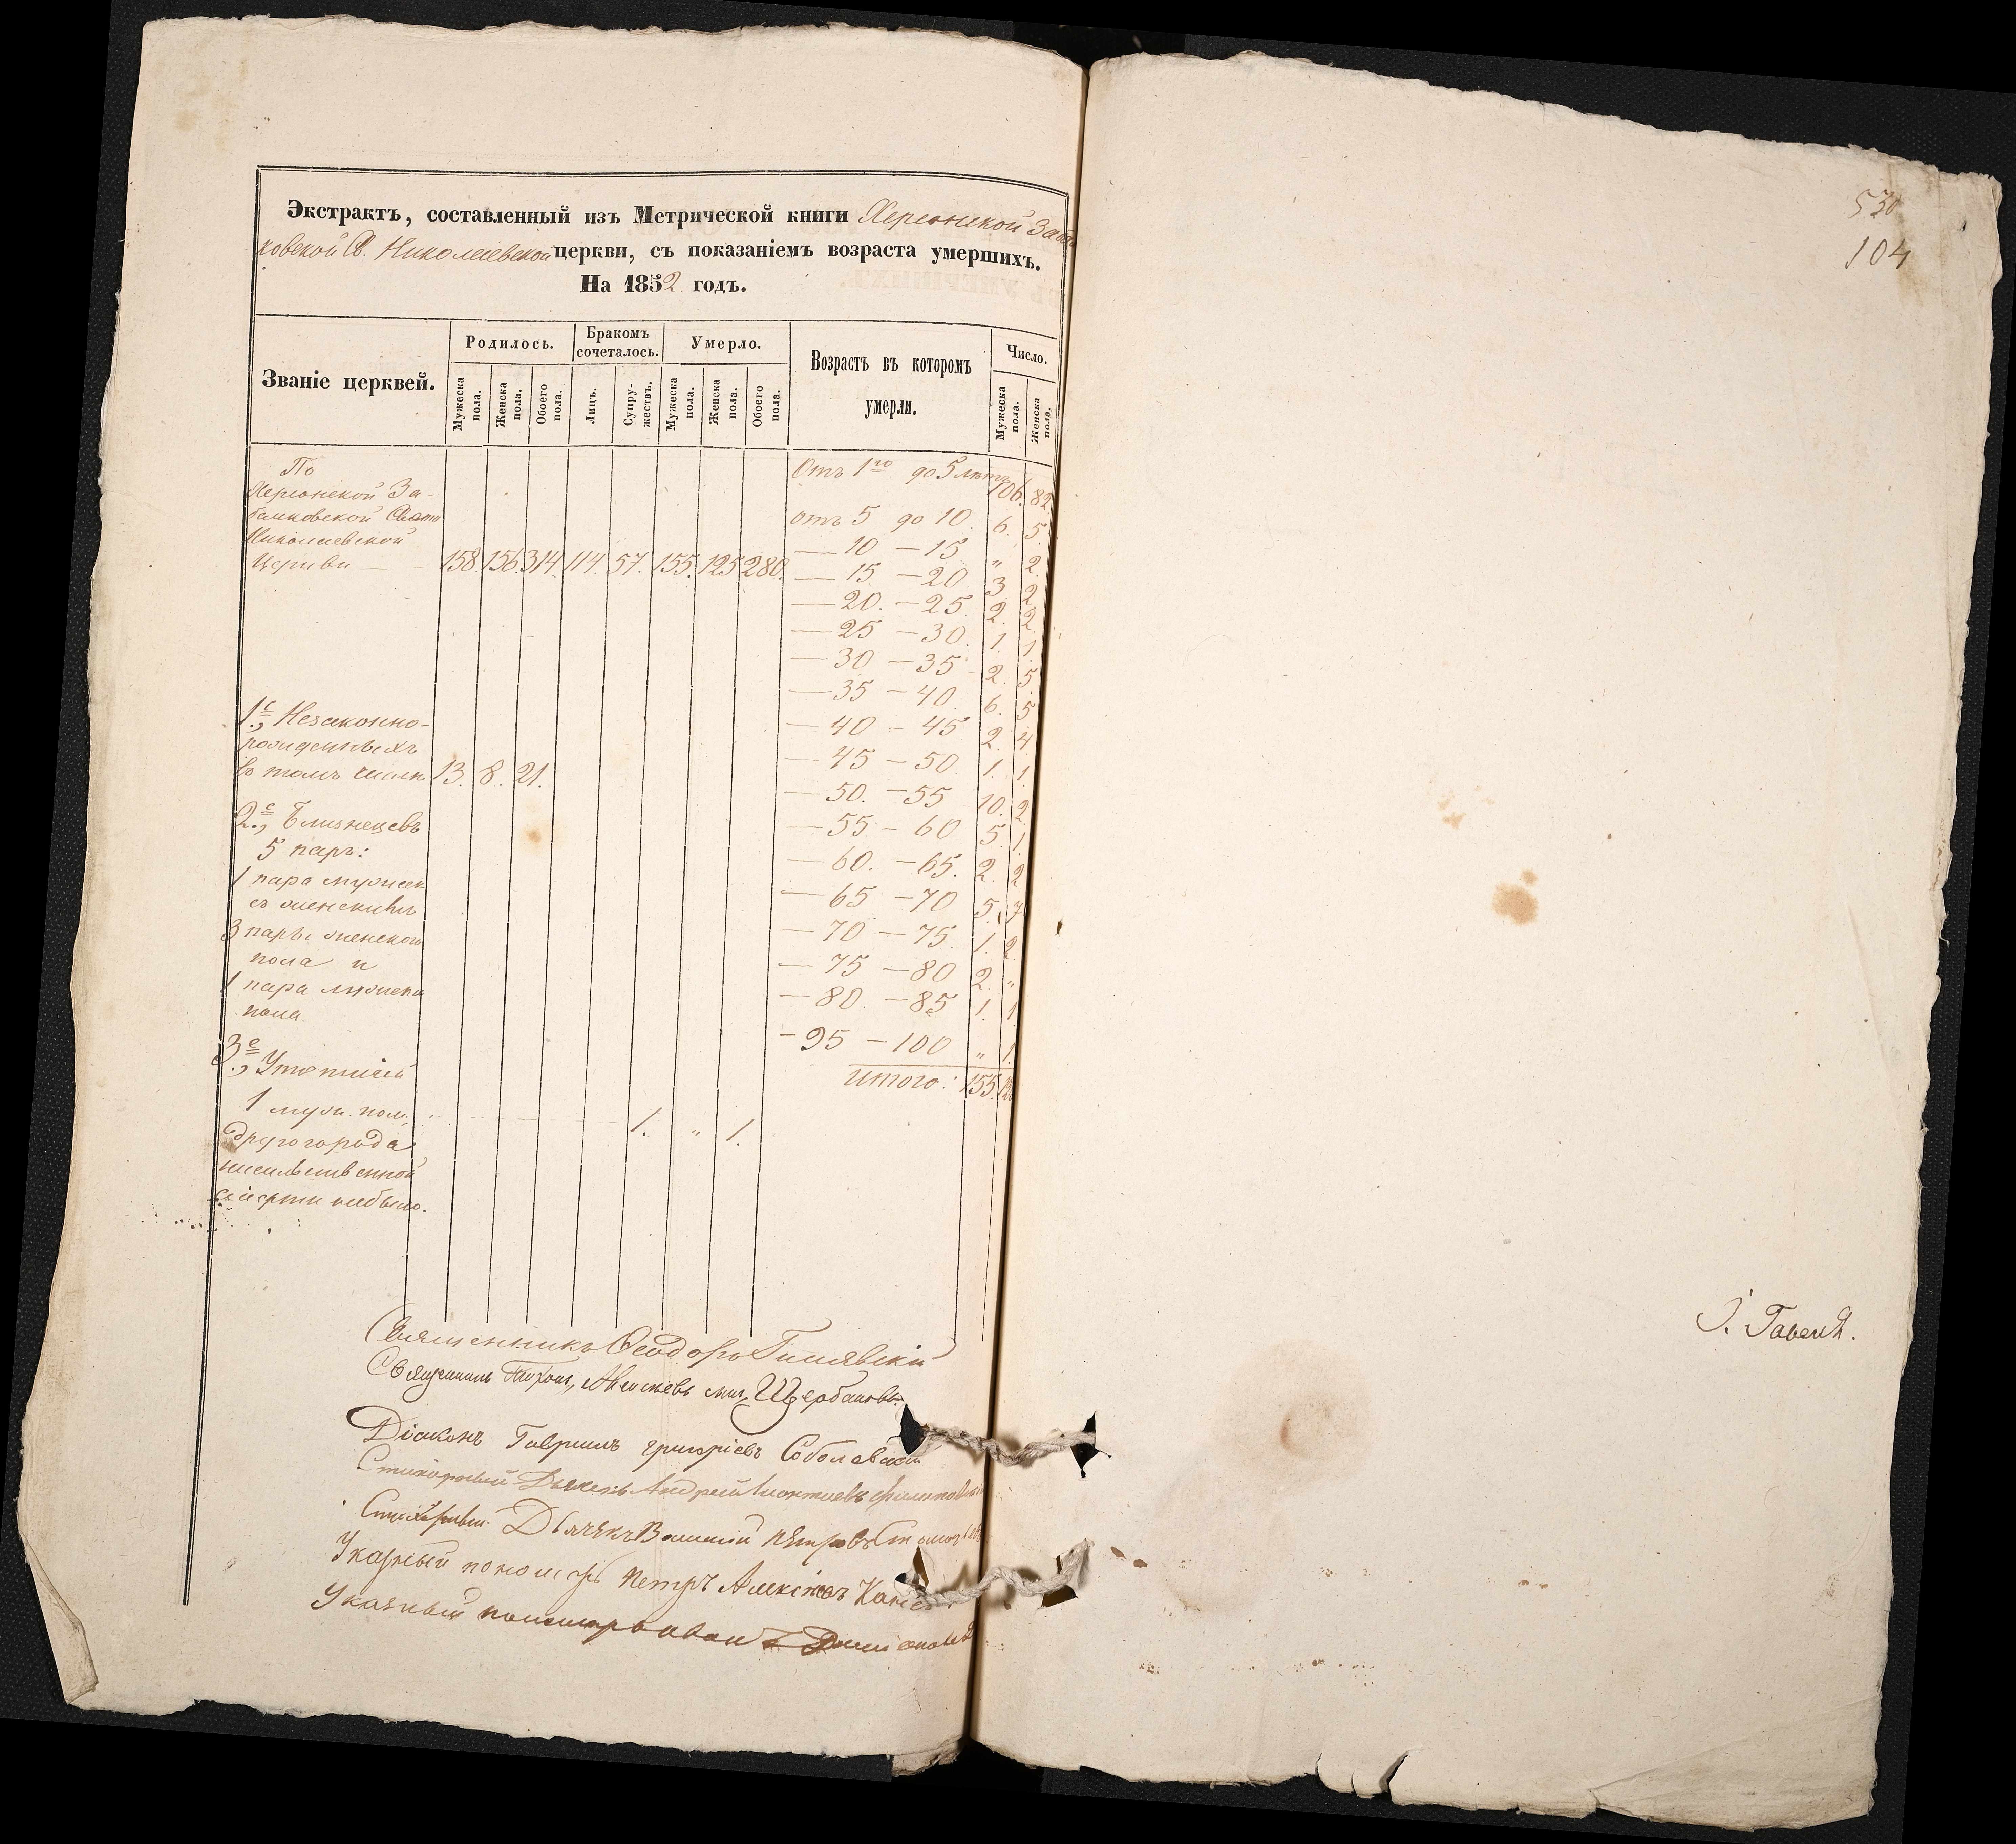 Экстрактъ, составленный изъ Метрической книги Херсонской Забал
ковской Св. Николаевской церкви, съ показаніемъ возраста умершихъ.
На 1852 годъ.
Званіе церквей.
Родилось.
Бракомъ сочеталось.
Умерло.
Возрастъ въ которомъ умерли.
Число.
Мужеска пола.
Женска пола.
Обоего пола.
Лицъ.
Супружествъ.
Мужеска пола.
Женска пола.
Обоего пола.
Мужеска пола.
Женска пола.
По
Херсонской За-
балковской Свято
Николаевской
Церкви — 158. 156. 314. 114. 57. 155. 125 280.
1е., Незаконно-
рожденныхъ
въ томъ числѣ 13. 8. 21.
2е., Близнецевъ
5 паръ:
1 пара мужеск
съ женскимъ
3 пары женского
пола и
1 пара мужска
пола.
3е.,
1 муж. пол. 1. " 1.
другого рода
насильственной
смерти небыло.
Отъ 1го до 5 лѣтъ 106. 82.
отъ 5 до 10. 6. 5.
— 10 — 15 " 2.
— 15 — 20 3 2
— 20. — 25. 2. 2
— 25 — 30. 1. 1.
— 30 — 35 2. 5.
— 35 — 40. 6. 5
— 40 — 45 2. 4.
— 45 — 50. 1. 1.
— 50. — 55 10. 2
— 55 — 60 5. 1.
— 60. — 65. 2. 2
— 65 — 70 5. 7
— 70 — 75. 1. 2.
— 75 — 80 2. "
— 80. — 85 1. 1
— 95 — 100 " 1.
итого: 155.
Священникъ Ѳеодоръ
Священникъ Щербаковъ.
Діаконъ Гавриилъ Григоріевъ Соболевскій
Стихарный Дьячекъ Андрей Леонтіевъ
Стихарный Дьячекъ Василій Петровъ
Указный пономарь Петръ Алексѣевъ
Указный пономарь Иванъ
530
104